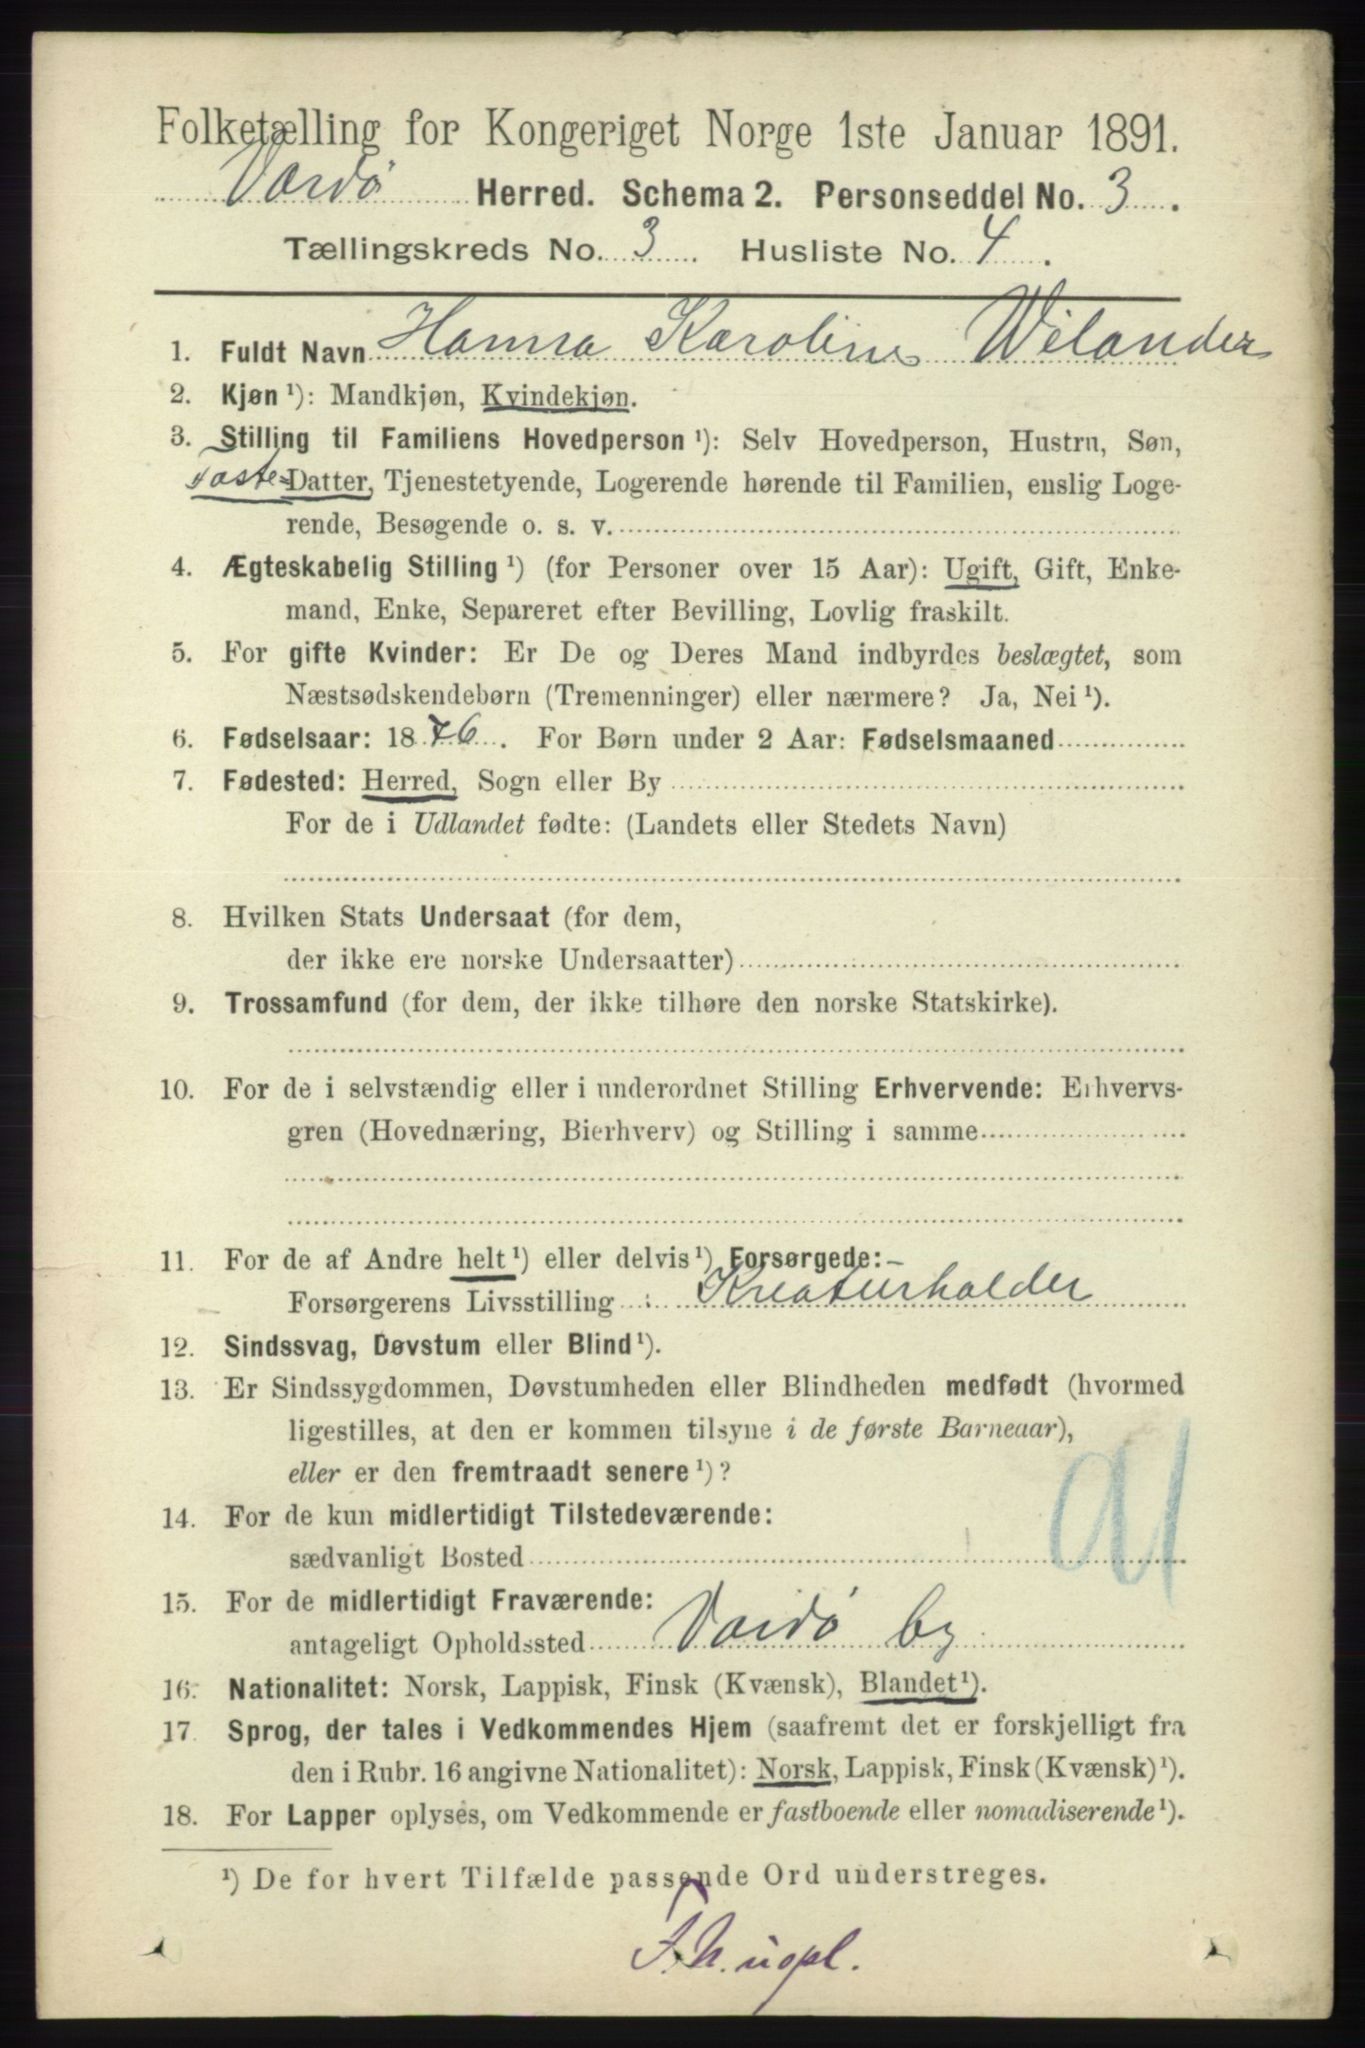 Folketælling for Kongeriget Norge 1ste Januar 1891.
Vardø Herred. Schema 2. Personseddel No. 3.
Tællingskreds No. 3. Husliste No. 4.
1. Fuldt Navn Hanna Karoline Wilander
2. Kjøn ¹): Mandkjøn, Kvindekjøn.
3. Stilling til Familiens Hovedperson ¹): Selv Hovedperson, Hustru, Søn,
Datter, Tjenestetyende, Logerende hørende til Familien, enslig Loge-
rende, Besøgende o. s. v.
4. Ægteskabelig Stilling ¹) (for Personer over 15 Aar): Ugift, Gift, Enke-
mand, Enke, Separeret efter Bevilling, Lovlig fraskilt.
5. For gifte Kvinder: Er De og Deres Mand indbyrdes beslægtet, som
Næstsødskendebørn (Tremenninger) eller nærmere? Ja, Nei ¹).
6. Fødselsaar: 1876. For Børn under 2 Aar: Fødselsmaaned
7. Fødested: Herred, Sogn eller By
For de i Udlandet fødte: (Landets eller Stedets Navn)
8. Hvilken Stats Undersaat (for dem,
der ikke ere norske Undersaatter)
9. Trossamfund (for dem, der ikke tilhøre den norske Statskirke).
10. For de i selvstændig eller i underordnet Stilling Erhvervende: Erhvervs-
gren (Hovednæring, Bierhverv) og Stilling i samme
11. For de af Andre helt ¹) eller delvis ¹) Forsørgede:
Forsørgerens Livsstilling : Kreaturholder
12. Sindssvag, Døvstum eller Blind ¹).
13. Er Sindssygdommen, Døvstumheden eller Blindheden medfødt (hvormed
ligestilles, at den er kommen tilsyne i de første Barneaar),
eller er den fremtraadt senere ¹)?
14. For de kun midlertidigt Tilstedeværende:
sædvanligt Bosted
15. For de midlertidigt Fraværende:
antageligt Opholdssted Vardø by
16. Nationalitet: Norsk, Lappisk, Finsk (Kvænsk), Blandet ¹).
17. Sprog, der tales i Vedkommendes Hjem (saafremt det er forskjelligt fra
den i Rubr. 16 angivne Nationalitet): Norsk, Lappisk, Finsk (Kvænsk) ¹).
18. For Lapper oplyses, om Vedkommende er fastboende eller nomadiserende ¹).
¹) De for hvert Tilfælde passende Ord understreges.